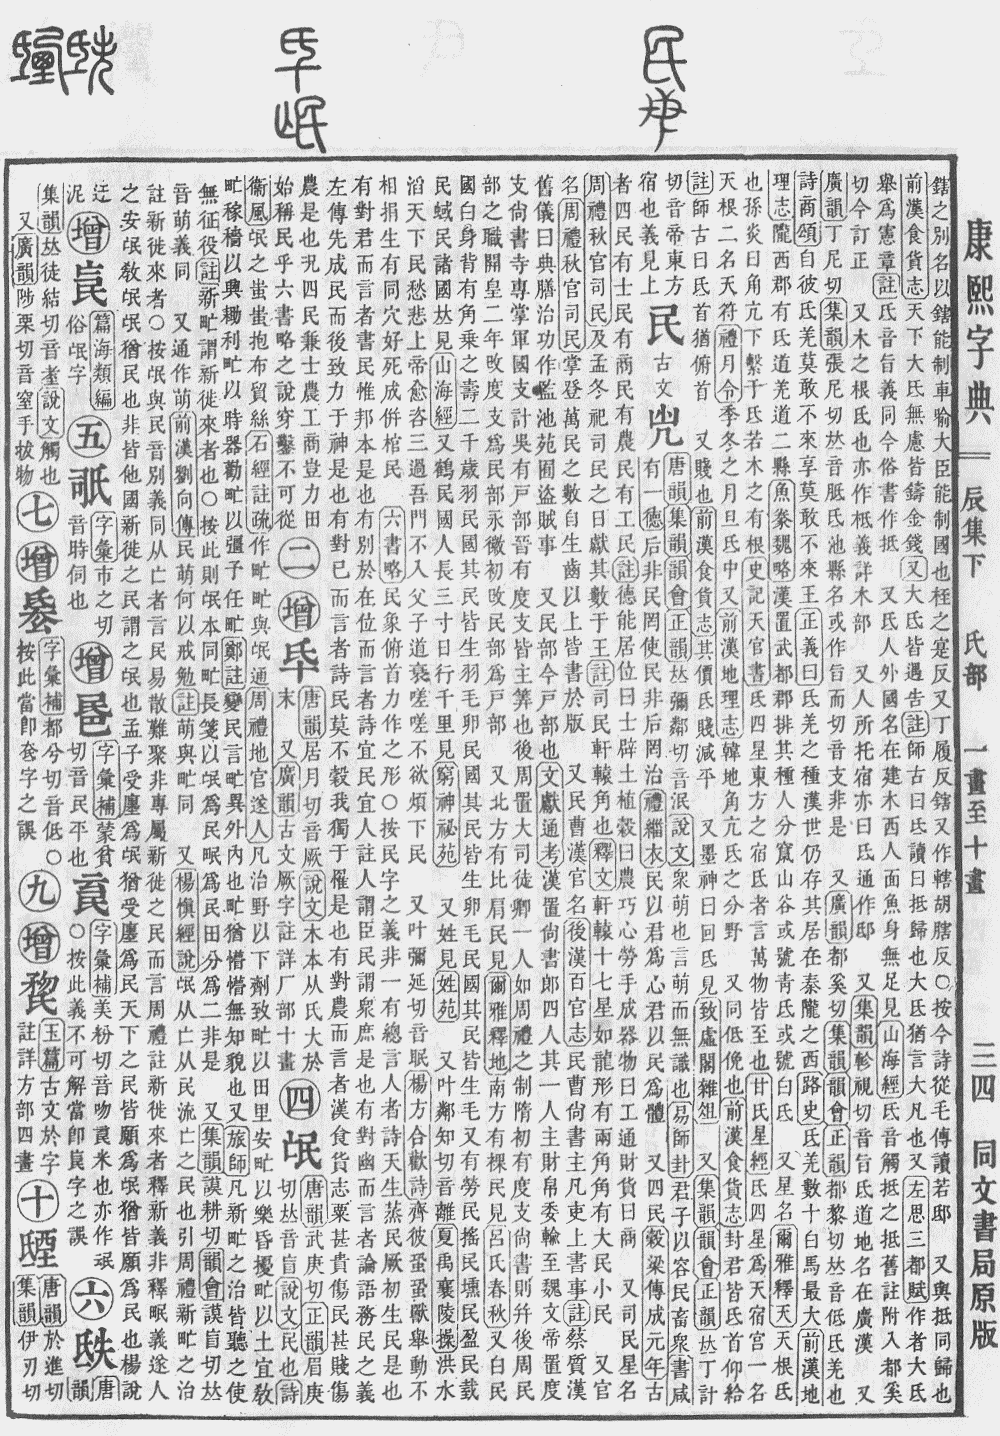 康熙字典 辰集下 氏部 一畫至十畫 三四 同文書局原版
鎋之別名以鎋能制車喻大臣能制國也柽之寔反又丁履反鎋又作轄胡瞎反○按今詩從毛傳讀若邸 又與抵同歸也
前漢食貨志天下大氐無慮皆鑄金錢又大氐皆遇告註師古曰氐讀曰抵歸也大氐猶言大凡也又左思三都賦作者大氐
舉爲憲章註氐音旨義同今俗書作抵 又氐人外國名在建木西人面魚身無足見山海經氐音觸抵之抵舊註附入都奚
切今訂正 又木之根氐也亦作柢義詳木部 又人所托宿亦曰氐通作邸 又集韻軫視切音旨氐道地名在廣漢 又
廣韻丁尼切集韻張尼切𠀤音胝氐池縣名或作旨而切音支非是 又廣韻都奚切集韻韻會正韻都黎切𠀤音低氐羌也
詩商頌自彼氐羌莫敢不來享莫敢不來王正義曰氐羌之種漢世仍存其居在秦隴之西路史氐羌數十白馬最大前漢地
理志隴西郡有氐道羌道二縣魚豢魏略漢置武都郡排其種人分竄山谷或號靑氐或號白氐 又星名爾雅釋天天根氐
也孫炎曰角亢下繫于氐若木之有根史記天官書氐四星東方之宿氐者言萬物皆至也甘氏星經氐四星爲天宿宫一名
天根二名天符禮月令季冬之月旦氐中又前漢地理志韓地角亢氐之分野 又同低俛也前漢食貨志封君皆氐首仰給
註師古曰氐首猶俯首 又賤也前漢食貨志其價氐賤減平 又墨神曰回氐見致虛閣雜俎 又集韻韻會正韻𠀤丁計
切音帝東方
宿也義見上
民 古文
唐韻集韻韻會正韻𠀤彌鄰切音泯說文衆萌也言萌而無識也易師卦君子以容民畜衆書咸
有一德后非民罔使民非后罔治禮緇衣民以君爲心君以民爲體 又四民穀梁傳成元年古
者四民有士民有商民有農民有工民註德能居位曰士辟土植穀曰農巧心勞手成器物曰工通財貨曰商 又司民星名
周禮秋官司民及孟冬祀司民之日獻其數于王註司民軒轅角也釋文軒轅十七星如龍形有兩角角有大民小民 又官
名周禮秋官司民掌登萬民之數自生齒以上皆書於版 又民曹漢官名後漢百官志民曹尙書主凡吏上書事註蔡質漢
舊儀曰典膳治功作監池苑囿盜賊事 又民部今戸部也文獻通考漢置尙書郎四人其一人主財帛委輸至魏文帝置度
支尙書寺專掌軍國支計吳有戸部晉有度支皆主筭也後周置大司徒卿一人如周禮之制隋初有度支尙書則幷後周民
部之職開皇二年攺度支爲民部永徽初攺民部爲戸部 又北方有比肩民見爾雅釋地南方有裸民見呂氏春秋又白民
國白身背有角乘之壽二千歲羽民國其民皆生羽毛卵民國其民皆生卵毛民國其民皆生毛又有勞民搖民壎民盈民臷
民蜮民諸國𠀤見山海經又鶴民國人長三寸日行千里見窮神祕苑 又姓見姓苑 又叶鄰知切音離夏禹襄陵操洪水
滔天下民愁悲上帝愈咨三過吾門不入父子道衰嗟嗟不欲煩下民 又叶彌延切音眠楊方合歡詩齊彼蛩蛩獸舉動不
相捐生有同穴好死成併棺民 六書略民象俯首力作之形○按民字之義非一有總言人者詩天生蒸民厥初生民是也
有對君而言者書民惟邦本是也有別於在位而言者詩宜民宜人註人謂臣民謂衆庶是也有對幽而言者論語務民之義
左傳先成民而後致力于神是也有對已而言者詩民莫不穀我獨于罹是也有對農而言者漢食貨志粟甚貴傷民甚賤傷
農是也况四民兼士農工商豈力田
始稱民乎六書略之說穿鑿不可從
二 增 𣱅
唐韻居月切音厥說文木本从氏大於
末 又廣韻古文厥字註詳厂部十畫
四 氓
唐韻武庚切正韻眉庚
切𠀤音盲說文民也詩
衞風氓之蚩蚩抱布貿絲石經註疏作甿甿與氓通周禮地官遂人凡治野以下劑致甿以田里安甿以樂昏擾甿以土宜敎
甿稼穡以興耡利甿以時器勸甿以彊予任甿鄭註變民言甿異外內也甿猶懵懵無知貌也又旅師凡新甿之治皆聽之使
無征役註新甿謂新徙來者也○按此則氓本同甿長箋以氓爲民甿爲民田分爲二非是 又集韻謨耕切韻會謨盲切𠀤
音萌義同 又通作萌前漢劉向傳民萌何以戒勉註萌與甿同 又楊愼經說氓从亡从民流亡之民也引周禮新甿之治
註新徙來者○按氓與民音別義同从亡者言民易散難聚非專屬新徙之民而言周禮註新徙來者釋新義非釋甿義遂人
之安氓敎氓氓猶民也非皆他國新徙之民謂之氓也孟子受廛爲氓猶受廛爲民天下之民皆願爲氓猶皆願爲民也楊說
迂
泥
增
篇海類編
俗氓字
五
字彙市之切
音時伺也
增
字彙補蒙貧
切音民平也
字彙補美粉切音吻 米也亦作氓
○按此義不可解當卽 字之譌
六
唐韻
集韻𠀤徒結切音耊說文觸也
又廣韻陟栗切音窒手拔物
七 增
字彙補都兮切音低○
按此當卽 字之譌
九 增
玉篇古文於字
註詳方部四畫
十
唐韻於進切
集韻伊刃切